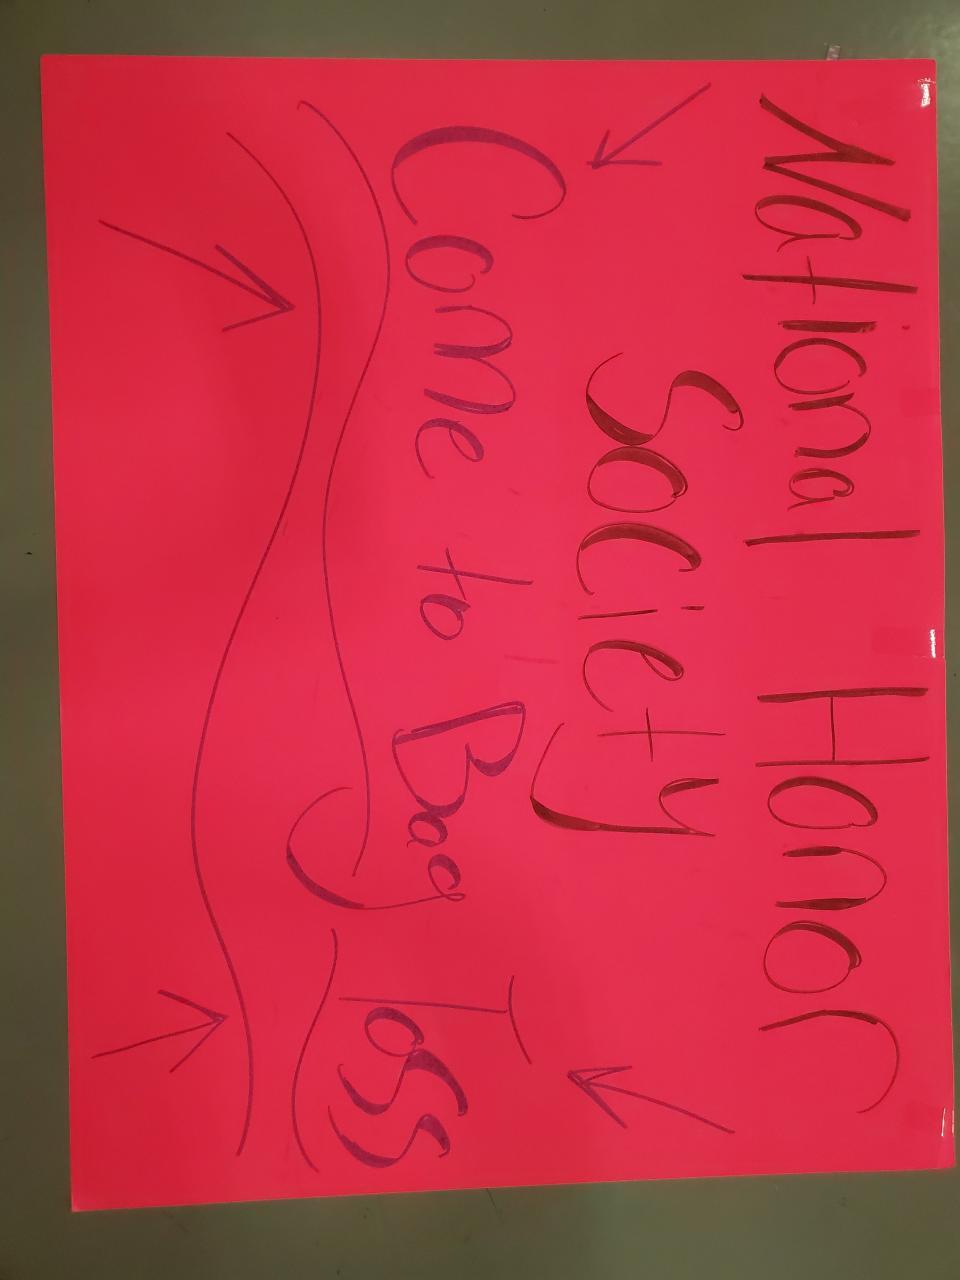 National Honor
Society
Come to Bag Toss